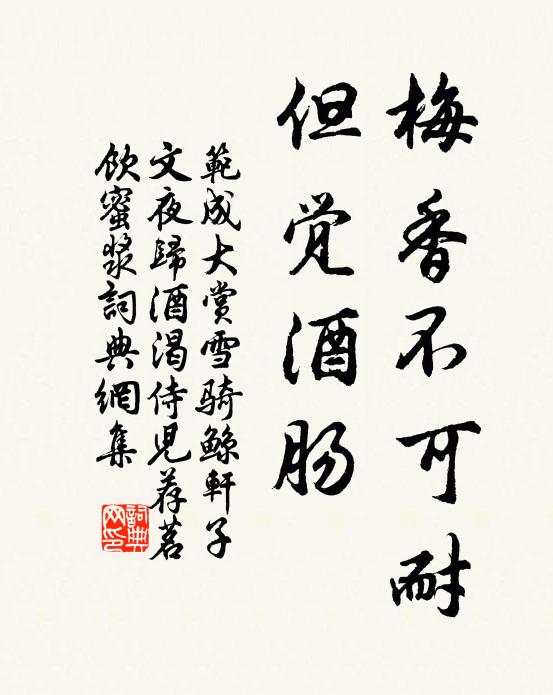 梅香不可耐
但觉酒肠
範成大赏雪骑鲸軒子
文夜歸酒渴侍児荐茗
饮蜜浆詞典網集
詞典网印